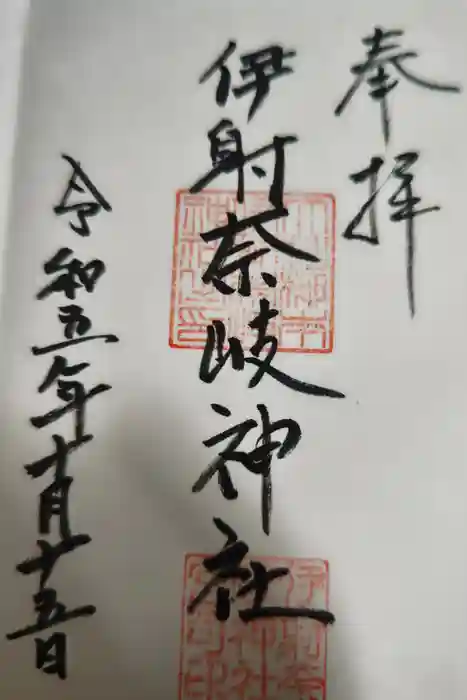 奉拝
伊射奈岐神社
令和五年十月廿五日